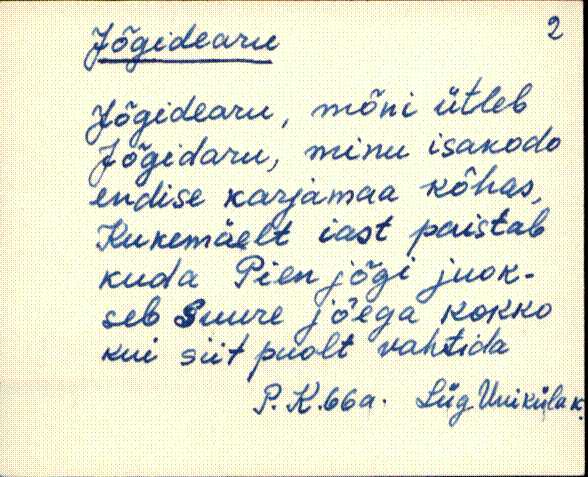 2
Jõgidearu
Jõgidearu, mõni ütleb
Jõgidaru, minu isakodo
endise karjamaa kõhas,
Kukemäelt iast paistab
kuda Pien jõgi juok-
seb Suure jõega kokko
kui siit puolt vahtida
P. K. 66a. Lüg Uuiküla k.